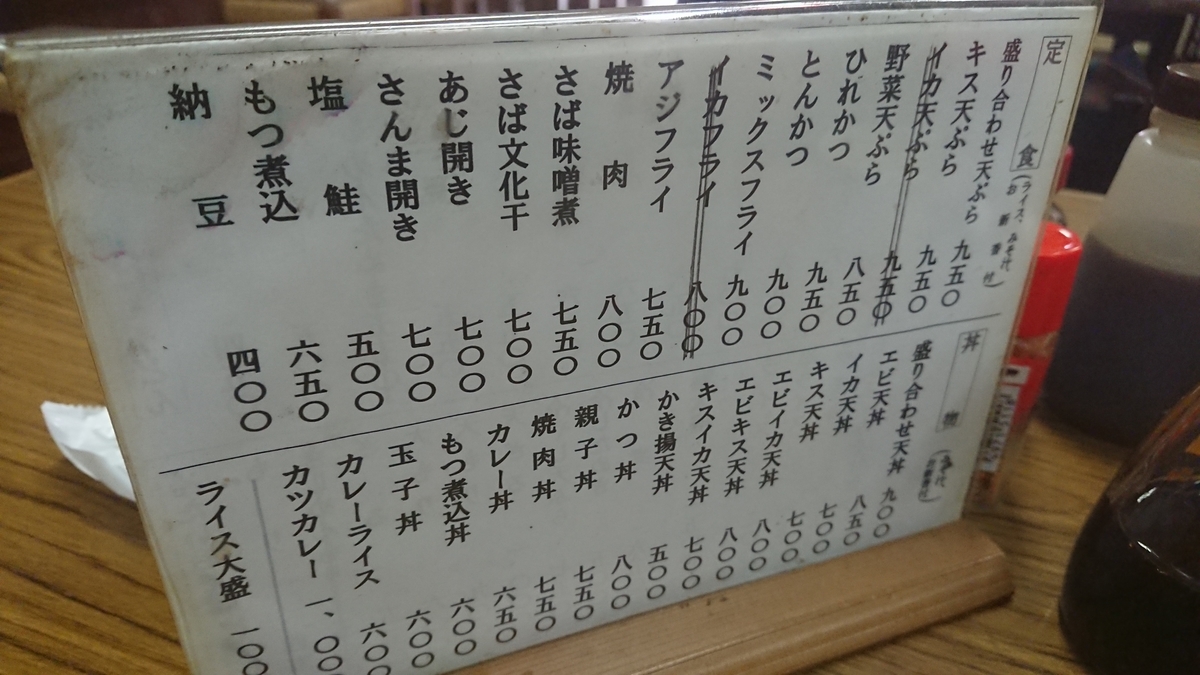 定食(ライス、みそ汁
お新香付)
盛り合わせ天ぷら 九五〇
キス天ぷら 九五〇
イカ天ぷら 九五〇
野菜天ぷら 八五〇
ひれかつ 九五〇
とんかつ 九〇〇
ミックスフライ 九〇〇
イカフライ 八〇〇
アジフライ 七五〇
焼肉 八〇〇
さば味噌煮 七五〇
さば文化干 七〇〇
あじ開き 七〇〇
さんま開き 七〇〇
塩鮭 五〇〇
もつ煮込 六五〇
納豆 四〇〇
丼物
盛り合わせ天丼 九〇〇
エビ天丼 八五〇
イカ天丼 七〇〇
キス天丼 七〇〇
エビイカ天丼 八〇〇
エビキス天丼 八〇〇
キスイカ天丼 七〇〇
かき揚天丼 五〇〇
かつ丼 八〇〇
親子丼 七五〇
焼肉丼 七五〇
カレー丼 六五〇
もつ煮込丼 六〇〇
玉子丼 六〇〇
カレーライス 六〇〇
カツカレー 一、〇〇
ライス大盛 一〇〇